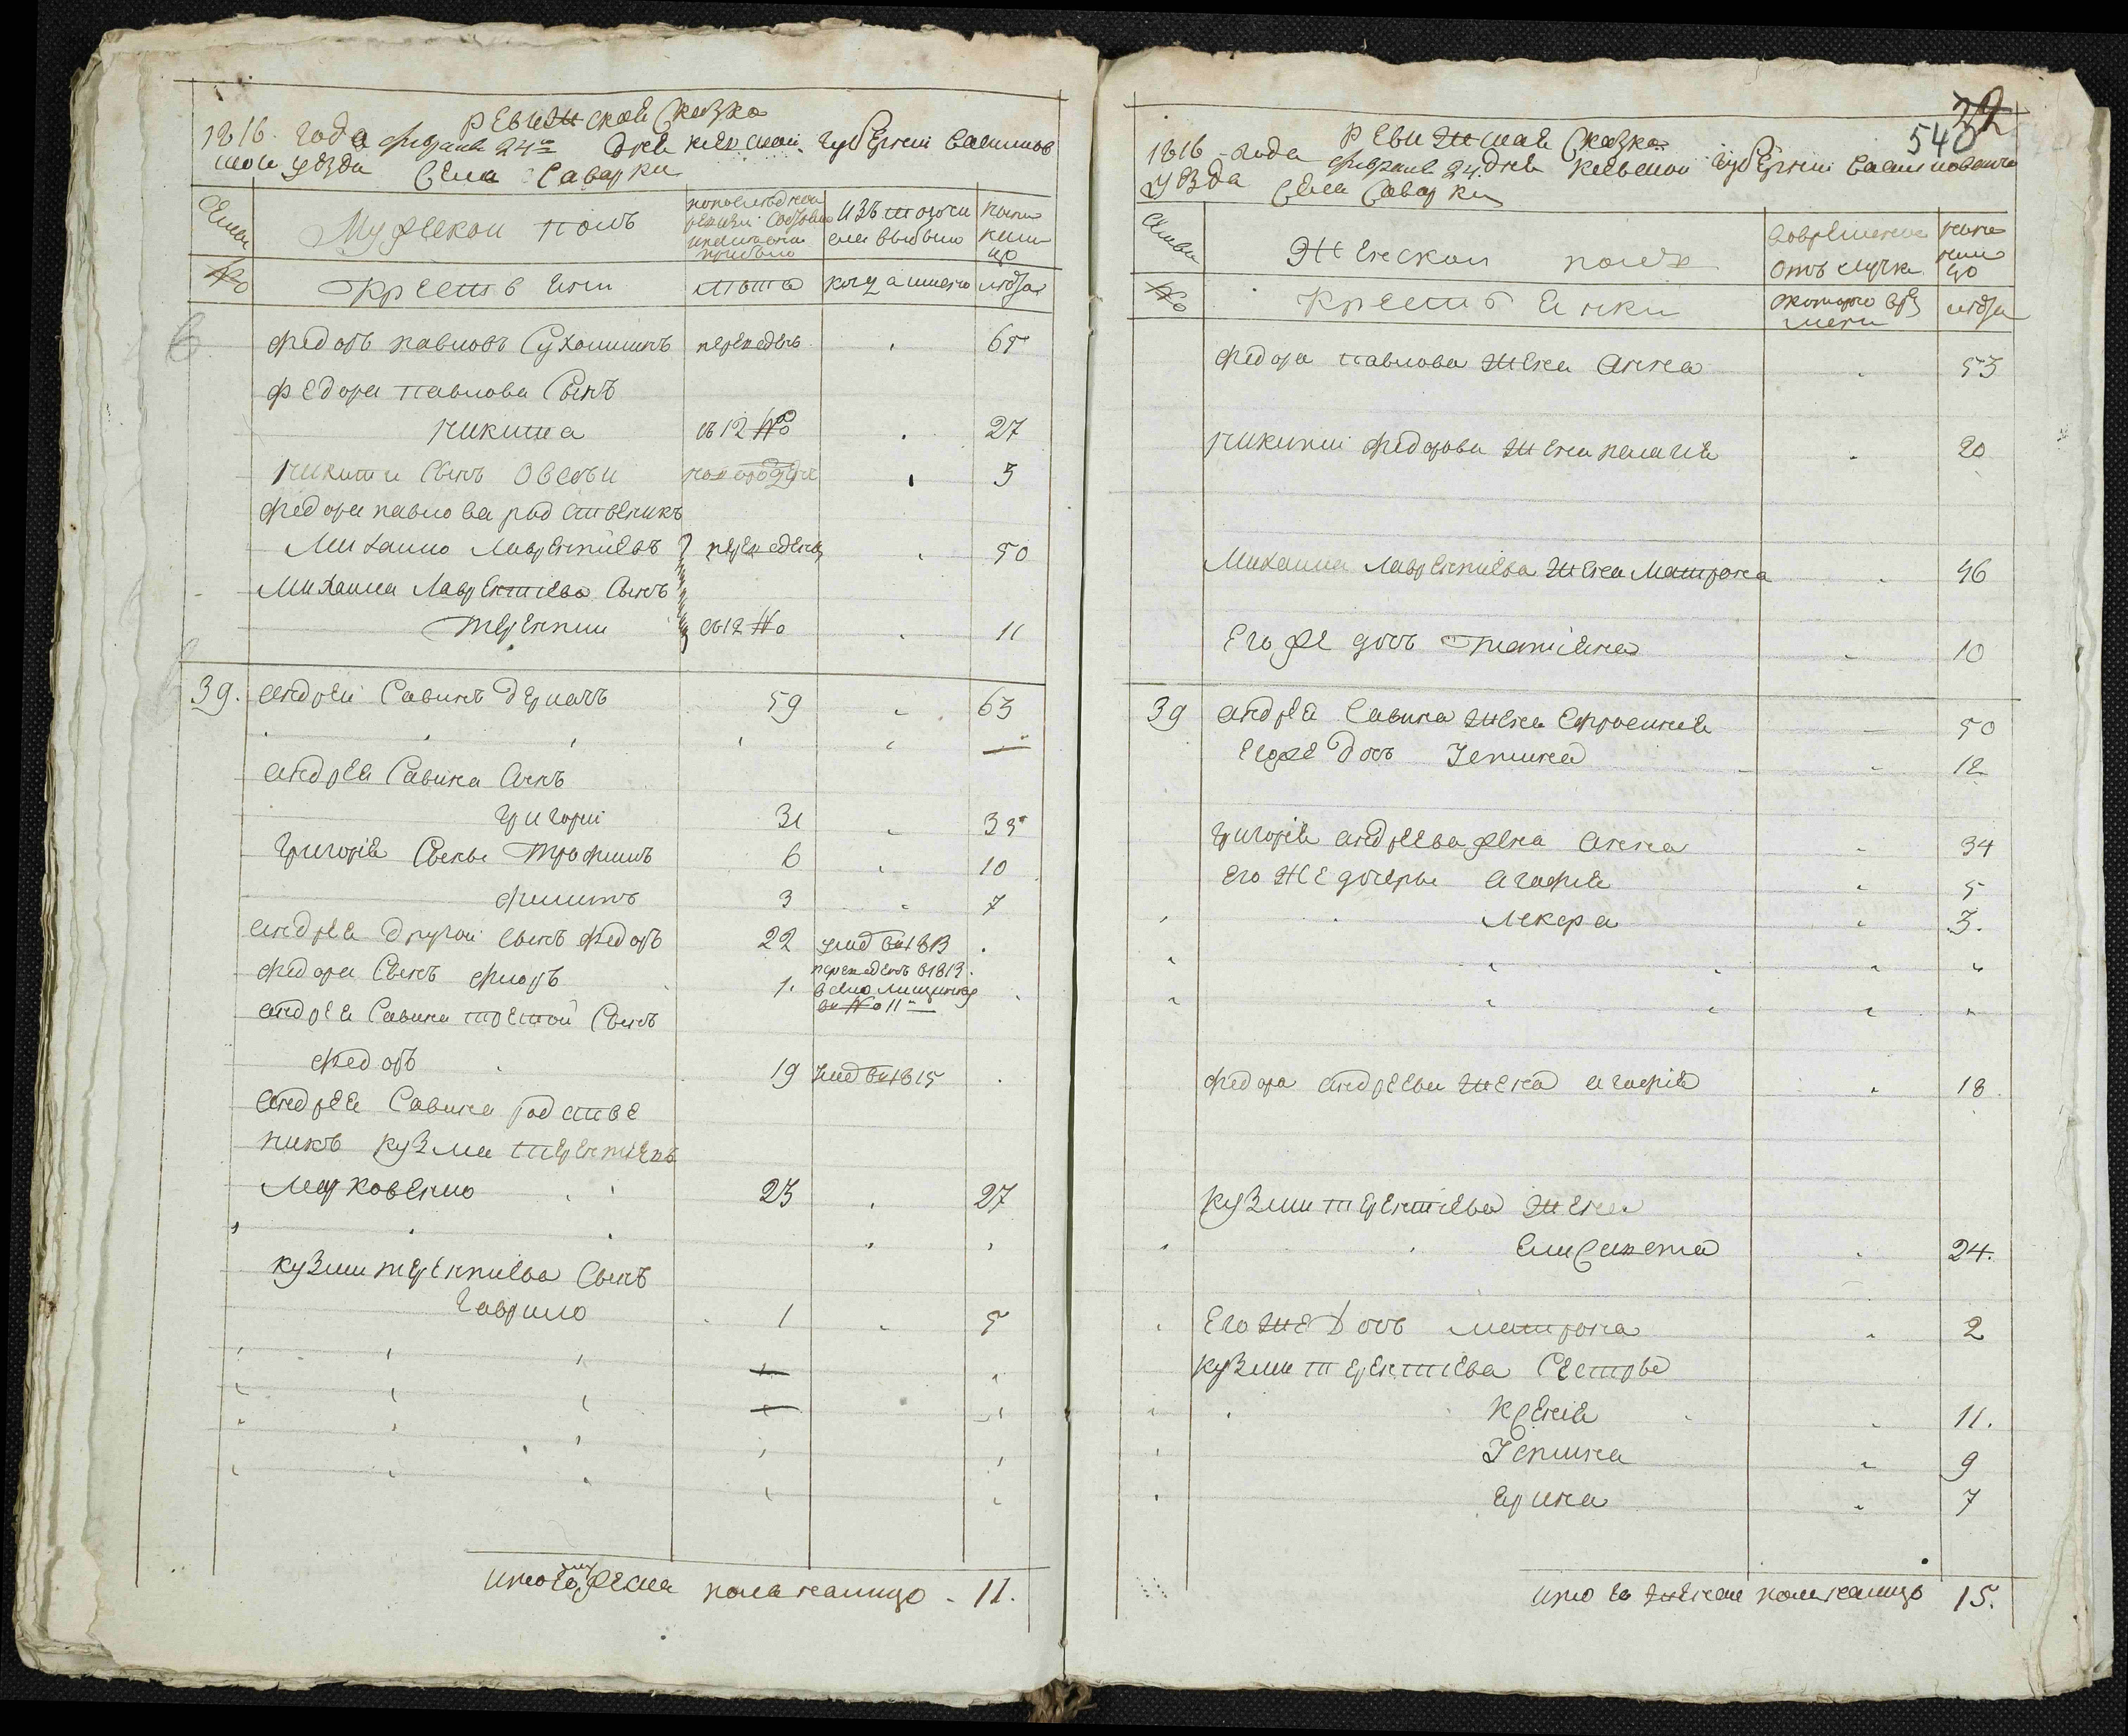 ревижская Сказка
1816 года февраля 24го дня киевской губернии василков
ской уезда Села Саварки
Семьи
Мужескои полъ
по последней ревизии состояло и после оной прибыло
изъ того числа выбыло
ныне на лицо
№
крестьяни
лета
когда имено
лета
федоръ павловъ Сухомлинъ переведенъ 65
федора павлова Сынъ
никита съ 12 № 27
никиты Сынъ Овсѣи новорожде 3
федора павлова родственикъ
Михаило Лаврентиевъ переведенъ 50
Михаила Лаврентиева Сынъ
терентии съ 12 №о 11
39. андрей Савинъ дергачъ 59 63
андрея Савина Сынъ
григорий 31 35
григория Сыны трофимъ 6 10
филипъ 3 7
андрея другои Сынъ федоръ 22 умер в 1813
федора Сынъ флоръ 1. переведенъ в 1813.
в село
в №о 11
андрея Савина третой Сынъ
федоръ 19 умер в 1815
андрея Савина родстве
никъ кузма терентиевъ
Марковенко 23 27
кузми терентиева Сынъ
гаврило 1 5
итого мужеска пола налицо - 11.
32
540
ревижская Сказка
1816 года февраля 24. дня киевской губернии василковского
уезда Села Саварки
Семьи
Женскои полъ
во временной отлучке
ныне на лицо
№
крестьянки
с которого времени
лета
федора павлова жена анна 53
никити федорова жена пелагия 20
Михаила лаврентиева жена Матрона 46
Его же дочь татияна 10
39 андрея Савина жена Ефросиния 50
Его же дочь Устина 12
григория андреева жена анна 34
Его же дочери агафия 5
Лекера 3.
федора андреева жена агафия 18
кузми терентиева жена
Елисавета 24.
Его же дочь матрона 2
кузми терентиева Сестры
Ксения 11.
Устина 9
арина 7
итого женска пола налицо 15.